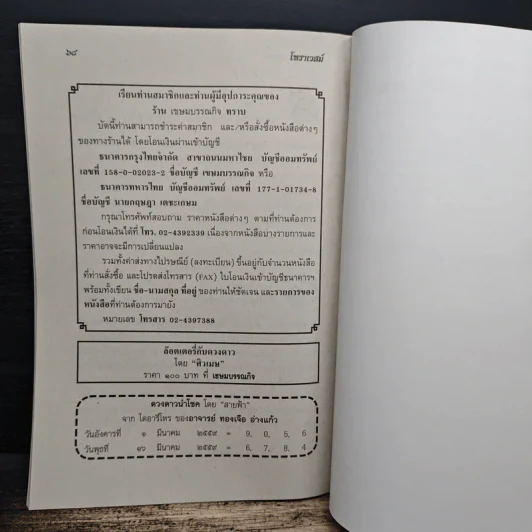 ๖๘
โหราเวสม์
เรียนท่านสมาชิกและท่านผู้มีอุปการะคุณของ
ร้าน เขษมบรรณกิจ ทราบ
บัดนี้ท่านสามารถชำระค่าสมาชิก และ/หรือสั่งซื้อหนังสือต่างๆ
ของทางร้านได้ โดยโอนเงินผ่านเข้าบัญชี
ธนาคารกรุงไทยจำกัด สาขาถนนมหาไชย บัญชีออมทรัพย์
เลขที่ 158-0-02023-2 ชื่อบัญชี เขษมบรรณกิจ หรือ
ธนาคารทหารไทย บัญชีออมทรัพย์ เลขที่ 177-1-01734-8
ชื่อบัญชี นายกฤษฎา เตชะเกษม
กรุณาโทรศัพท์สอบถาม ราคาหนังสือต่างๆ ตามที่ท่านต้องการ
ก่อนโอนเงินได้ที่ โทร. 02-4392339 เนื่องจากหนังสือบางรายการและ
ราคาอาจจะมีการเปลี่ยนแปลง
รวมทั้งค่าส่งทางไปรษณีย์ (ลงทะเบียน) ขึ้นอยู่กับจำนวนหนังสือ
ที่ท่านสั่งซื้อ และโปรดส่งโทรสาร (FAX) ใบโอนเงินเข้าบัญชีธนาคารฯ
พร้อมทั้งเขียน ชื่อ-นามสกุล ที่อยู่ ของท่านให้ชัดเจน และรายการของ
หนังสือที่ท่านต้องการมายัง
หมายเลข โทรสาร 02-4397388
ล๊อตเตอรี่กับดวงดาว
โดย "ศิวเมษ"
ราคา ๑๐๐ บาท ที่ เขษมบรรณกิจ
ดวงดาวนำโชค โดย "สายฟ้า"
จาก ไดอารี่โหร ของอาจารย์ ทองเจือ อ่างแก้ว
วันอังคารที่ ๑ มีนาคม ๒๕๕๙ = 9, 0, 5, 6
วันพุธที่ ๑๖ มีนาคม ๒๕๕๙ = 6, 7, 8, 4